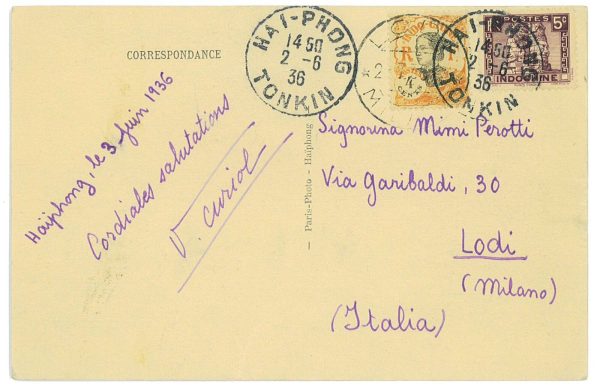 CORRESPONDANCE
HAI-PHONG
1450
2-6
36
TONKIN
POSTES 5c
INDOCHINE
HAI-PHONG
1450
2-6
36
TONKIN
Haïphong, le 3 Juin 1936
Cordiales salutations
V. Curiol
Paris-Photo - Haïphong
Signorina Mimi Perotti
Via Garibaldi, 30
Lodi
(Milano)
(Italia)